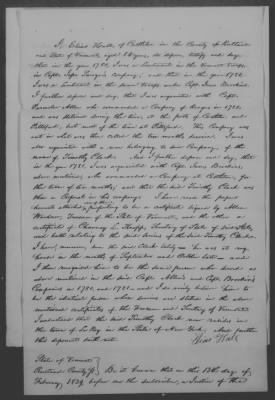 I, Elias Hall of Castleton in the County of Rutland
and State of Vermont, aged            years, do depose, testify and say
that in the year 1780, I was a Lieutenant in the Vermont troops
in Capt.                 Company, and that in the year 1781
I was a Lieutenant in the same troops under Capt. Jesse Brookins.
I further depose and say, that I was acquainted with Capt.
Parmelee Allen who commanded a Company of Rangers in 1780
and was stationed during that time at the forts of Castleton and
Pittsford, but most of the time at Pittsford. This Company was
out in what was then called the two months service. I was
also acquainted with a man belonging to said Company, of the
name of Timothy Clark. And I further depose and say, that
in the year 1781, I was acquainted with Capt. Jesse Brookins,
above mentioned, who commanded a Company at Castleton, for
the term of two months; and that the said Timothy Clark was
then a Corporal in his company. I have read the papers
hereto attached, purporting to be a certificate signed by Allen
Wardner, Treasurer of the State of Vermont, and the other a
certificate of Chauncy L. Knapp, Secretary of State of said State,
and both relating to the paid service of the said Timothy Clark.
I know, moreover, that the said Clark
house in the month of September and October last and
I then recognized him to be the same person who served as
above mentioned in the said Capt. Allen's and Capt. Brookins'
Companies in 1780, and 1781 and I do verily believe him to
be the identical person whose services are stated in the above
mentioned certificates of the Treasurer and Secretary of Vermont.
I understand that the said Timothy Clark now resides in
the town of Le Roy in the State of New York. And further
this deponent saith not.
Elias Hall
State of Vermont
Rutland County ss. Be it known that on the 13th day of
February, 1839, before me the subscriber, a Justice of the